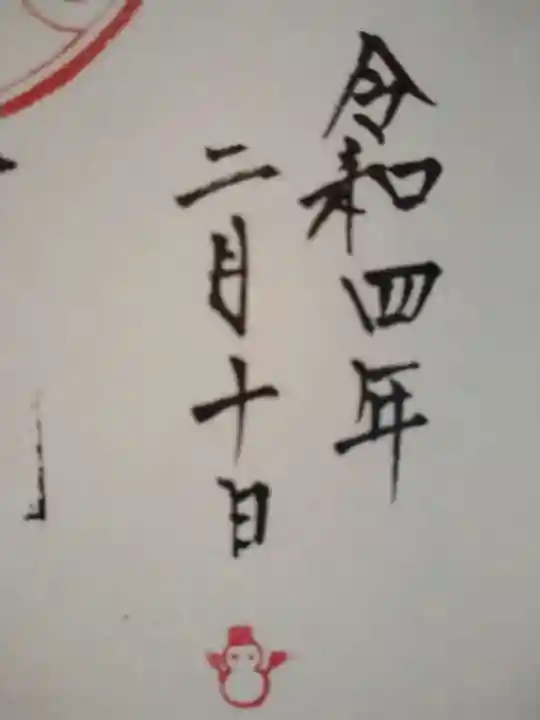 令和四年
二月十日